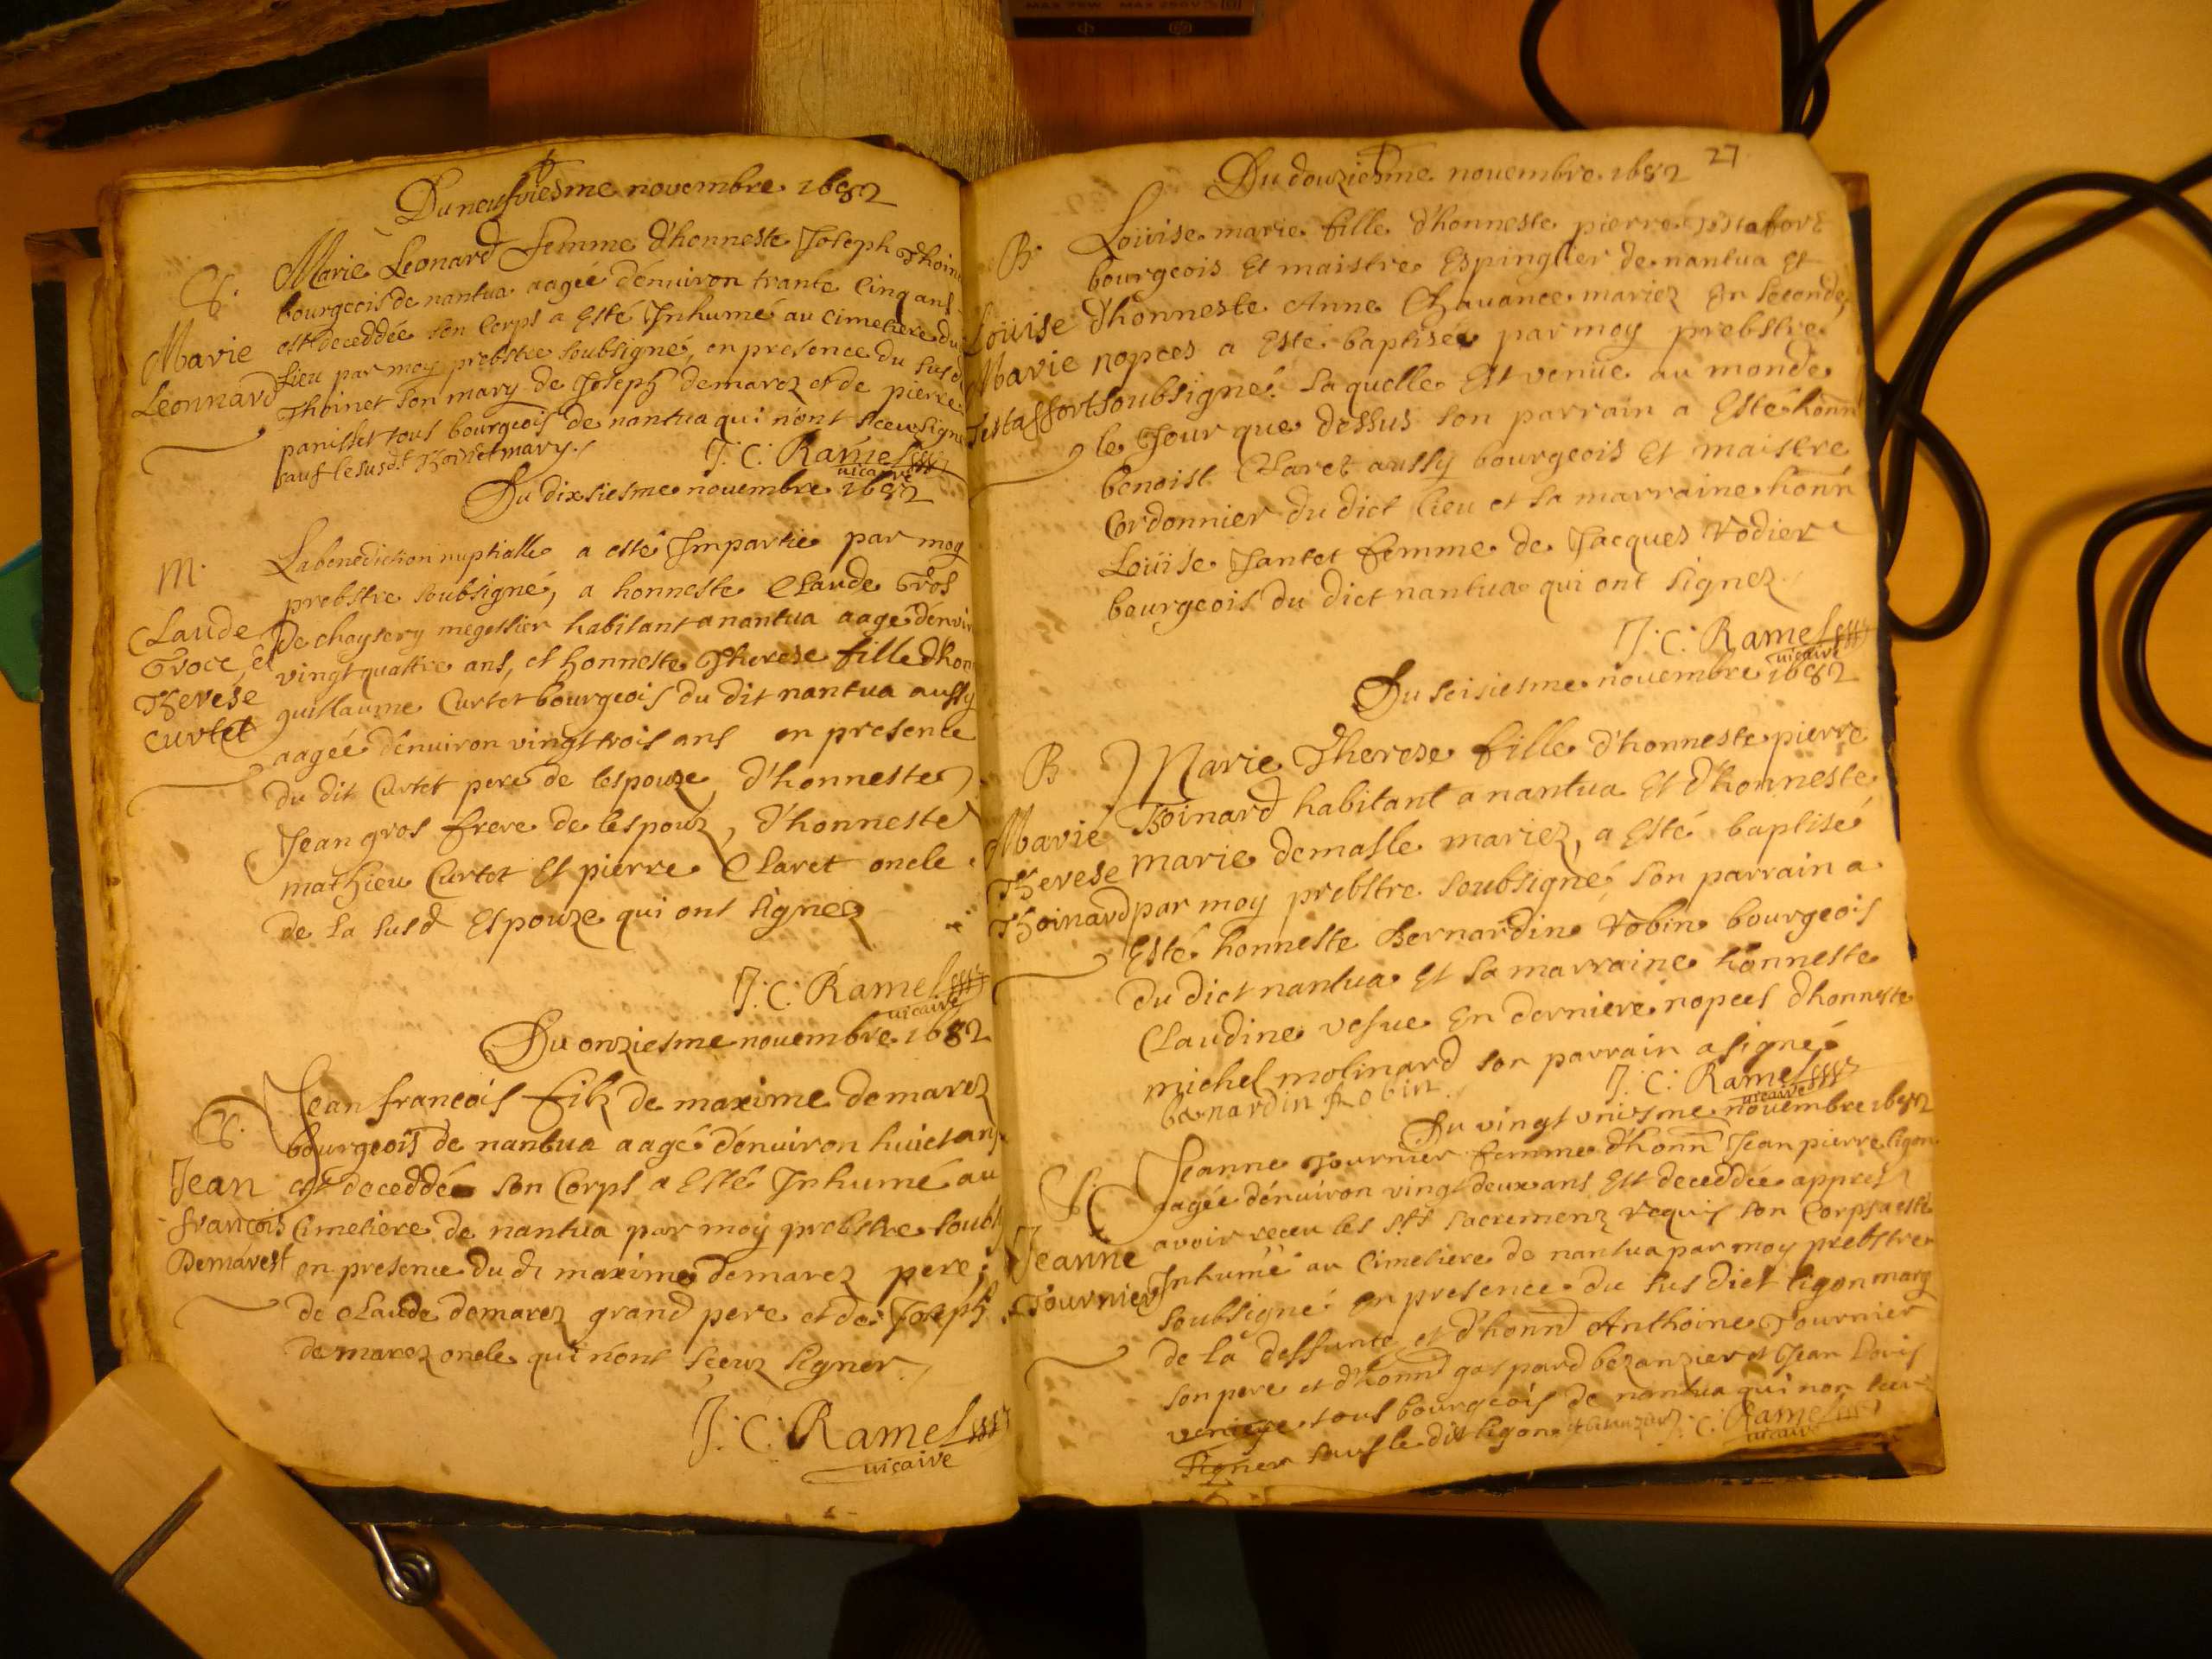 Du neufviesme novembre 1682
Marie Leonard femme d'honneste Joseph Thoin
bourgeois de nantua aagée dénuiron trante Cinq ans
est deceddée son Corps a Esté Inhumé au Cimetiere du
Lieu par moy prebstre soubsigné, en presence du susd
Thoinet son mary de Joseph demarez et de pierre
panisset tous bourgeois de nantua qui n'ont sceu signe
sauf le susd.t Thoinet mary.
Marie
Léonnard
J: C: Ramel
uicaire
Du dixsiesme novembre 1682
M.
Claude
Groce, et
Therese
Curtet
La benediction nuptialle a esté Impartie par moy
prebstre soubsigné, a honneste Claude Gros
De chaysery megessier habitant a nantua aagé dénvir
vingt quattre ans, et honneste Therese fille d'hon
guillaume Curtet bourgeois du dit nantua aussy
aagée dénuiron vingt trois ans en presence
du dit Curtet pere de lespouze, d'honneste
Jean gros frere de lespouz, d'honneste
mathieu Curtet Et pierre Claret oncle
de la susd Espouze qui ont signez
J: C: Ramel
uicaire
Du onziesme nouembre 1682
Jean
françois
Demarest
Jean françois filz de maxime demarez
bourgeois de nantua aagé dénuiron huict ans
est deceddé son Corps a Esté Inhumé au
Cimetiere de nantua par moy prebstre soubs
en presence du dt maxime demarez pere,
de Claude demarez grand pere et de Joseph
demarez oncle qui n'ont sceuz signer.
J: C: Ramel
uicaire
27
Du douziesme nouembre 1682
B
Loüise
Marie
Testaffort
Loüise marie fille d'honneste pierre Testafort
bourgeois Et maistre Espinglier de nantua Et
d'honneste Anne Chauance mariez En secondes
nopces a Esté baptisée par moy prebstre
soubsigné. Laquelle Est venüe au monde
le Jour que dessus son parrain a Esté honn
benoist Claret aussy bourgeois Et maistre
Cordonnier du dict lieu et sa marraine honn
Loüise Jantet femme de Jacques Rodier
bourgeois du dict nantua qui ont signez
J: C: Ramel
uicaire
Du seisiesme nouembre 1682
B
Marie
Therese
Thoinard
Marie Therese fille d'honneste pierre
Thoinard habitant a nantua Et d'honneste
marie demasle mariez, a Esté baptisé
par moy prebstre soubsigné son parrain a
Esté honneste Bernardin Robin bourgeois
du dict nantua Et sa marraine honneste
Claudine vefue En derniere nopces d'honneste
michel molinard son parrain a signé
bernardin Robin
J: C: Ramel
uicaire
Du vingt vniesme nouembre 1682
Jeanne
Tournier
Jeanne Tournier femme d'honn Jean pierre ligon
aagée dénuiron vingt deux ans Est deceddée appres
avoir receu les Sts sacremenz requis son Corps a esté
Inhumé au Cimetiere de nantua par moy prebstre
soubsigné En presence du susdict ligon mary
de la deffunte et d'honn Anthoine Tournier
son pere et d'honn gaspard bezanzier et Jean Louis
tous bourgeois de nantua qui non sceu
Signer sauf le dit ligon
J: C: Ramel
uicaire